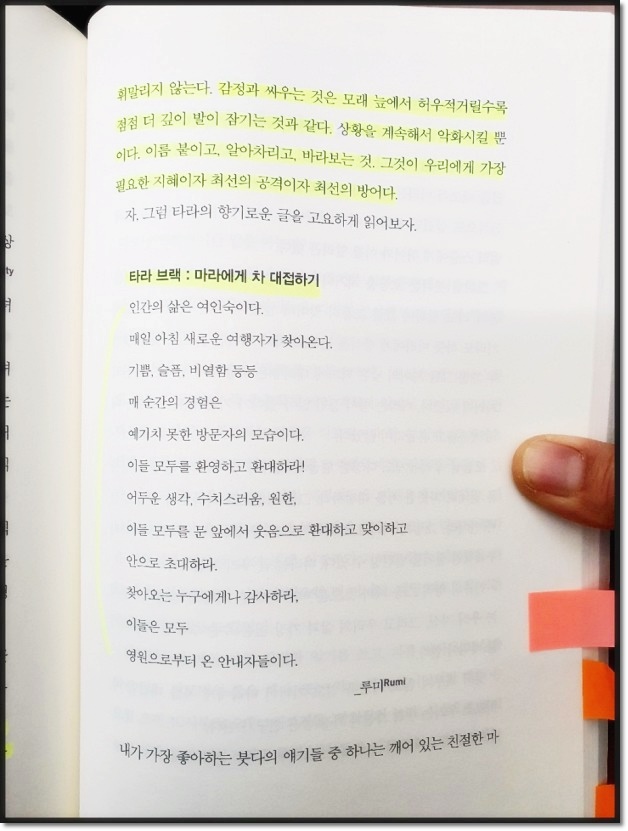 휘말리지 않는다. 감정과 싸우는 것은 모래 늪에서 허우적거릴수록
점점 더 깊이 발이 잠기는 것과 같다. 상황을 계속해서 악화시킬 뿐
이다. 이름 붙이고, 알아차리고, 바라보는 것. 그것이 우리에게 가장
필요한 지혜이자 최선의 공격이자 최선의 방어다.
자, 그럼 타라의 향기로운 글을 고요하게 읽어보자.
타라 브랙 : 마라에게 차 대접하기
인간의 삶은 여인숙이다.
매일 아침 새로운 여행자가 찾아온다.
기쁨, 슬픔, 비열함 등등
매 순간의 경험은
예기치 못한 방문자의 모습이다.
이들 모두를 환영하고 환대하라!
어두운 생각, 수치스러움, 원한,
이들 모두를 문 앞에서 웃음으로 환대하고 맞이하고
안으로 초대하라.
찾아오는 누구에게나 감사하라,
이들은 모두
영원으로부터 온 안내자들이다.
_루미Rumi
내가 가장 좋아하는 붓다의 얘기들 중 하나는 깨어 있는 친절한 마